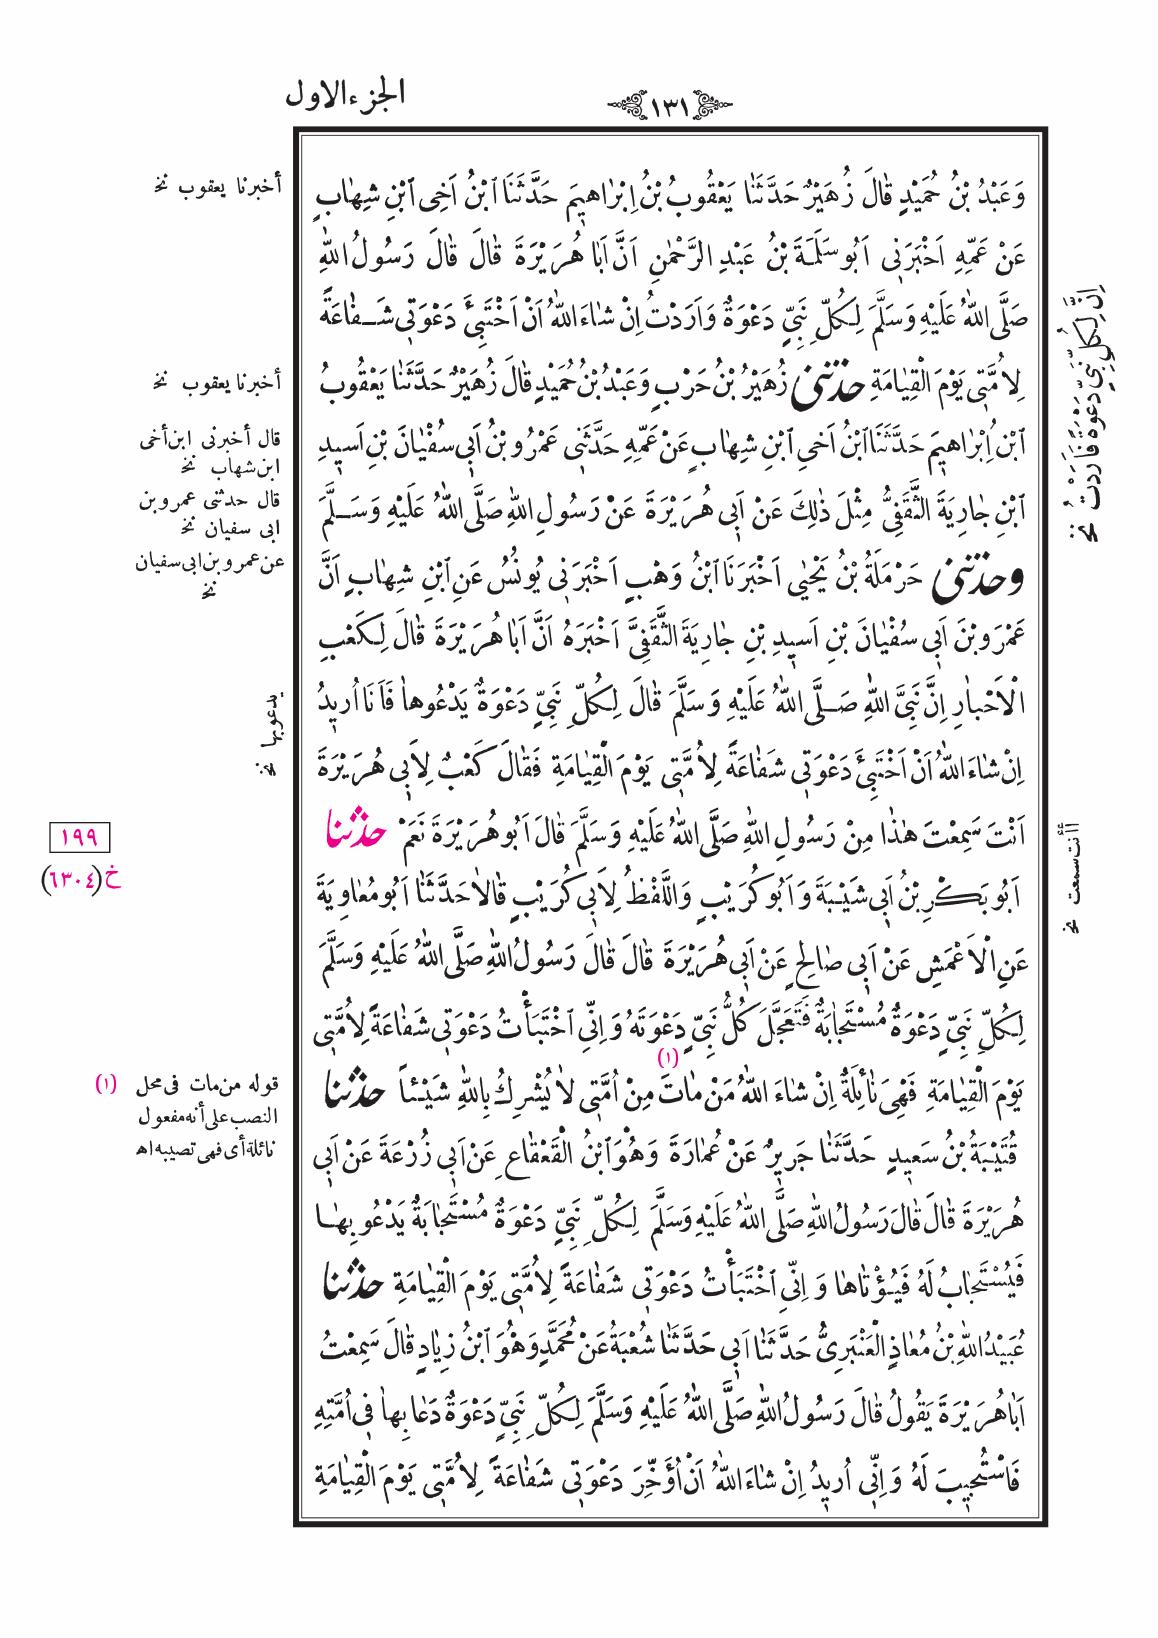 الجزء الاول
١٣١
وَعَبْدُ بْنُ حُمَيْدٍ قَالَ زُهَيْرٌ حَدَّثَنَا يَعْقُوبُ بْنُ اِبْرَاهِيمَ حَدَّثَنَا ابْنُ اَخِى ابْنِ شِهَابٍ
عَنْ عَمِّهِ اَخْبَرَنِى اَبُو سَلَمَةَ بْنُ عَبْدِ الرَّحْمٰنِ اَنَّ اَبَا هُرَيْرَةَ قَالَ قَالَ رَسُولُ اللّٰهِ
صَلَّى اللّٰهُ عَلَيْهِ وَسَلَّمَ لِكُلِّ نَبِيٍّ دَعْوَةٌ وَاَرَدْتُ اِنْ شَاءَ اللّٰهُ اَنْ اَخْتَبِئَ دَعْوَتِى شَفَاعَةً
لِاُمَّتِى يَوْمَ الْقِيَامَةِ حدثنى زُهَيْرُ بْنُ حَرْبٍ وَعَبْدُ بْنُ حُمَيْدٍ قَالَ زُهَيْرٌ حَدَّثَنَا يَعْقُوبُ
ابْنُ اِبْرَاهِيمَ حَدَّثَنَا ابْنُ اَخِى ابْنِ شِهَابٍ عَنْ عَمِّهِ حَدَّثَنِى عَمْرُو بْنُ اَبِى سُفْيَانَ بْنِ اَسِيدِ
ابْنِ جَارِيَةَ الثَّقَفِىُّ مِثْلَ ذٰلِكَ عَنْ اَبِى هُرَيْرَةَ عَنْ رَسُولِ اللّٰهِ صَلَّى اللّٰهُ عَلَيْهِ وَسَلَّمَ
وحدثنى حَرْمَلَةُ بْنُ يَحْيٰى اَخْبَرَنَا ابْنُ وَهْبٍ اَخْبَرَنِى يُونُسُ عَنِ ابْنِ شِهَابٍ اَنَّ
عَمْرَو بْنَ اَبِى سُفْيَانَ بْنِ اَسِيدِ بْنِ جَارِيَةَ الثَّقَفِىَّ اَخْبَرَهُ اَنَّ اَبَا هُرَيْرَةَ قَالَ لِكَعْبِ
الْاَحْبَارِ اِنَّ نَبِىَّ اللّٰهِ صَلَّى اللّٰهُ عَلَيْهِ وَسَلَّمَ قَالَ لِكُلِّ نَبِيٍّ دَعْوَةٌ يَدْعُوهَا فَاَنَا اُرِيدُ
اِنْ شَاءَ اللّٰهُ اَنْ اَخْتَبِئَ دَعْوَتِى شَفَاعَةً لِاُمَّتِى يَوْمَ الْقِيَامَةِ فَقَالَ كَعْبٌ لِاَبِى هُرَيْرَةَ
اَنْتَ سَمِعْتَ هٰذَا مِنْ رَسُولِ اللّٰهِ صَلَّى اللّٰهُ عَلَيْهِ وَسَلَّمَ قَالَ اَبُو هُرَيْرَةَ نَعَمْ حدثنا
اَبُو بَكْرِ بْنُ اَبِى شَيْبَةَ وَاَبُو كُرَيْبٍ وَاللَّفْظُ لِاَبِى كُرَيْبٍ قَالَا حَدَّثَنَا اَبُو مُعَاوِيَةَ
عَنِ الْاَعْمَشِ عَنْ اَبِى صَالِحٍ عَنْ اَبِى هُرَيْرَةَ قَالَ قَالَ رَسُولُ اللّٰهِ صَلَّى اللّٰهُ عَلَيْهِ وَسَلَّمَ
لِكُلِّ نَبِيٍّ دَعْوَةٌ مُسْتَجَابَةٌ فَتَعَجَّلَ كُلُّ نَبِيٍّ دَعْوَتَهُ وَاِنِّى اخْتَبَأْتُ دَعْوَتِى شَفَاعَةً لِاُمَّتِى
يَوْمَ الْقِيَامَةِ فَهِىَ نَائِلَةٌ اِنْ شَاءَ اللّٰهُ مَنْ مَاتَ (١) مِنْ اُمَّتِى لَا يُشْرِكُ بِاللّٰهِ شَيْئاً حدثنا
قُتَيْبَةُ بْنُ سَعِيدٍ حَدَّثَنَا جَرِيرٌ عَنْ عُمَارَةَ وَهُوَ ابْنُ الْقَعْقَاعِ عَنْ اَبِى زُرْعَةَ عَنْ اَبِى
هُرَيْرَةَ قَالَ قَالَ رَسُولُ اللّٰهِ صَلَّى اللّٰهُ عَلَيْهِ وَسَلَّمَ لِكُلِّ نَبِيٍّ دَعْوَةٌ مُسْتَجَابَةٌ يَدْعُو بِهَا
فَيُسْتَجَابُ لَهُ فَيُؤْتَاهَا وَاِنِّى اخْتَبَأْتُ دَعْوَتِى شَفَاعَةً لِاُمَّتِى يَوْمَ الْقِيَامَةِ حدثنا
عُبَيْدُ اللّٰهِ بْنُ مُعَاذٍ الْعَنْبَرِىُّ حَدَّثَنَا اَبِى حَدَّثَنَا شُعْبَةُ عَنْ مُحَمَّدٍ وَهُوَ ابْنُ زِيَادٍ قَالَ سَمِعْتُ
اَبَا هُرَيْرَةَ يَقُولُ قَالَ رَسُولُ اللّٰهِ صَلَّى اللّٰهُ عَلَيْهِ وَسَلَّمَ لِكُلِّ نَبِيٍّ دَعْوَةٌ دَعَا بِهَا فِى اُمَّتِهِ
فَاسْتُجِيبَ لَهُ وَاِنِّى اُرِيدُ اِنْ شَاءَ اللّٰهُ اَنْ اُؤَخِّرَ دَعْوَتِى شَفَاعَةً لِاُمَّتِى يَوْمَ الْقِيَامَةِ
أخبرنا يعقوب نخ
أخبرنا يعقوب نخ
قال أخبرنى ابن أخى
ابن شهاب نخ
قال حدثنى عمرو بن
ابى سفيان نخ
عن عمرو بن ابى سفيان
نخ
يدعو بها نخ
١٩٩
خ (٦٣٠٤)
(١) قوله من مات فى محل
النصب على أنه مفعول
نائلة أى فهى تصيبه اه
اِنَّ لِكُلِّ نَبِيٍّ دعوة فأردت نخ
أأنت سمعت نخ